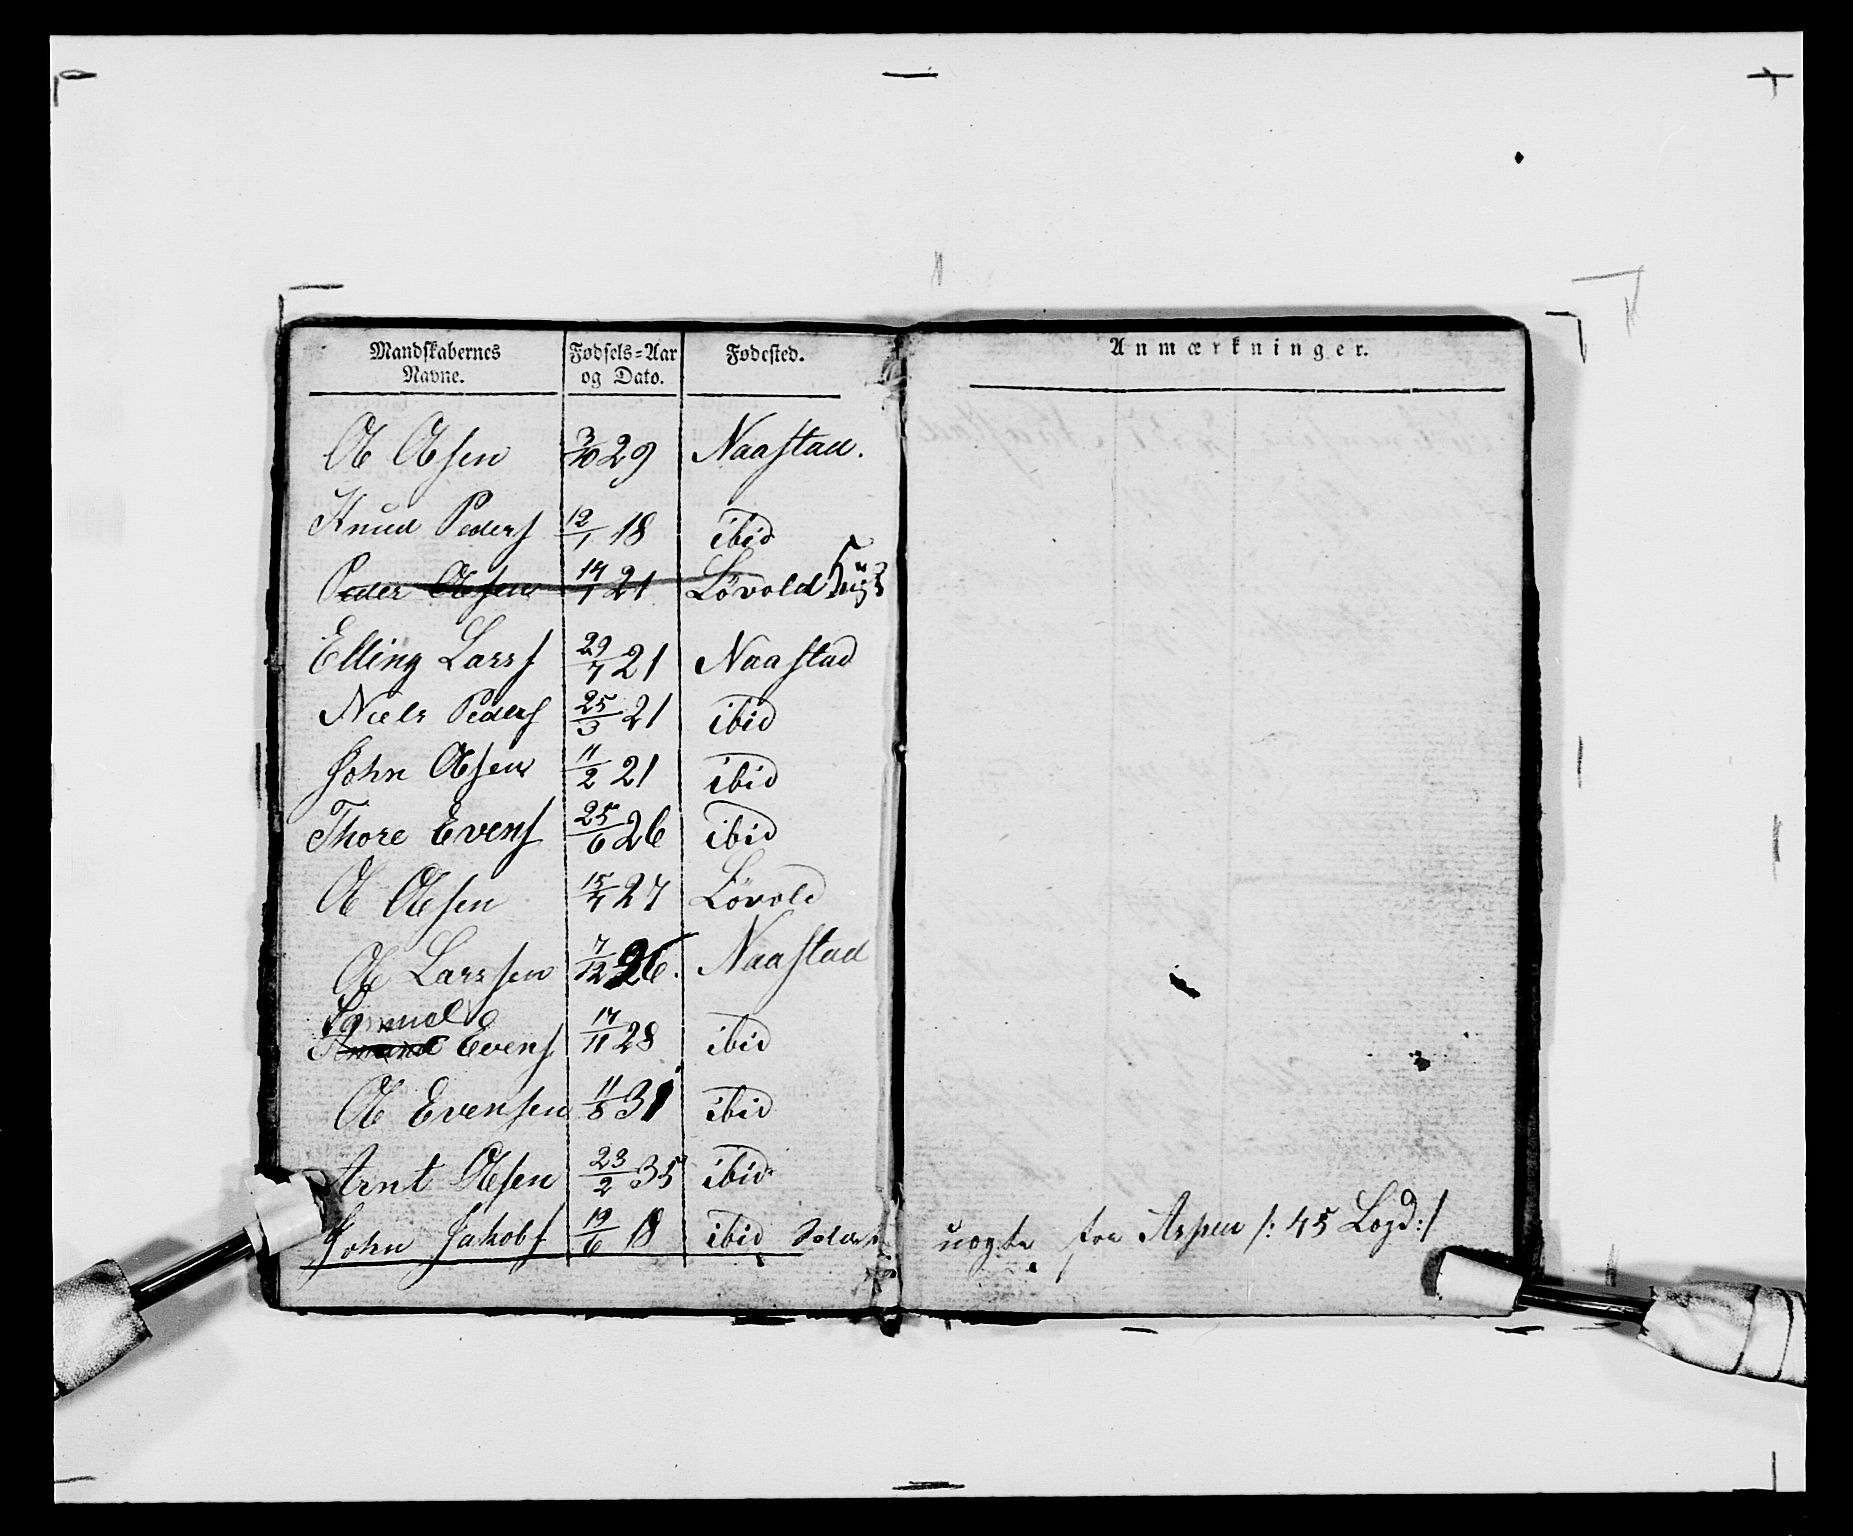 Mandskabernes Navne. Fødsels=Aar og Dato. Fødested. Anmærkninger.
Ole Olsen 3/10 29 Naastad.
Knud Peders 12/1 18 ibid
Peder Olsen 14/1 21 Lövold
Elling Larss 29/7 21 Naastad
Niels Peders 25/3 21 ibid
John Olsen 11/2 21 ibid
Thore Evens 25/6 26 ibid
Ole Olsen 15/7 27 Lövold
Ole Larssen 7/12 26. Naastad
Samuel
Evens 17/11 28 ibid
Ole Evensen 11/8 31 ibid
Arnt Olsen 23/2 35 ibid
John Jakobs 19/6 18 ibid for Aspen /: 45 Lægd :/